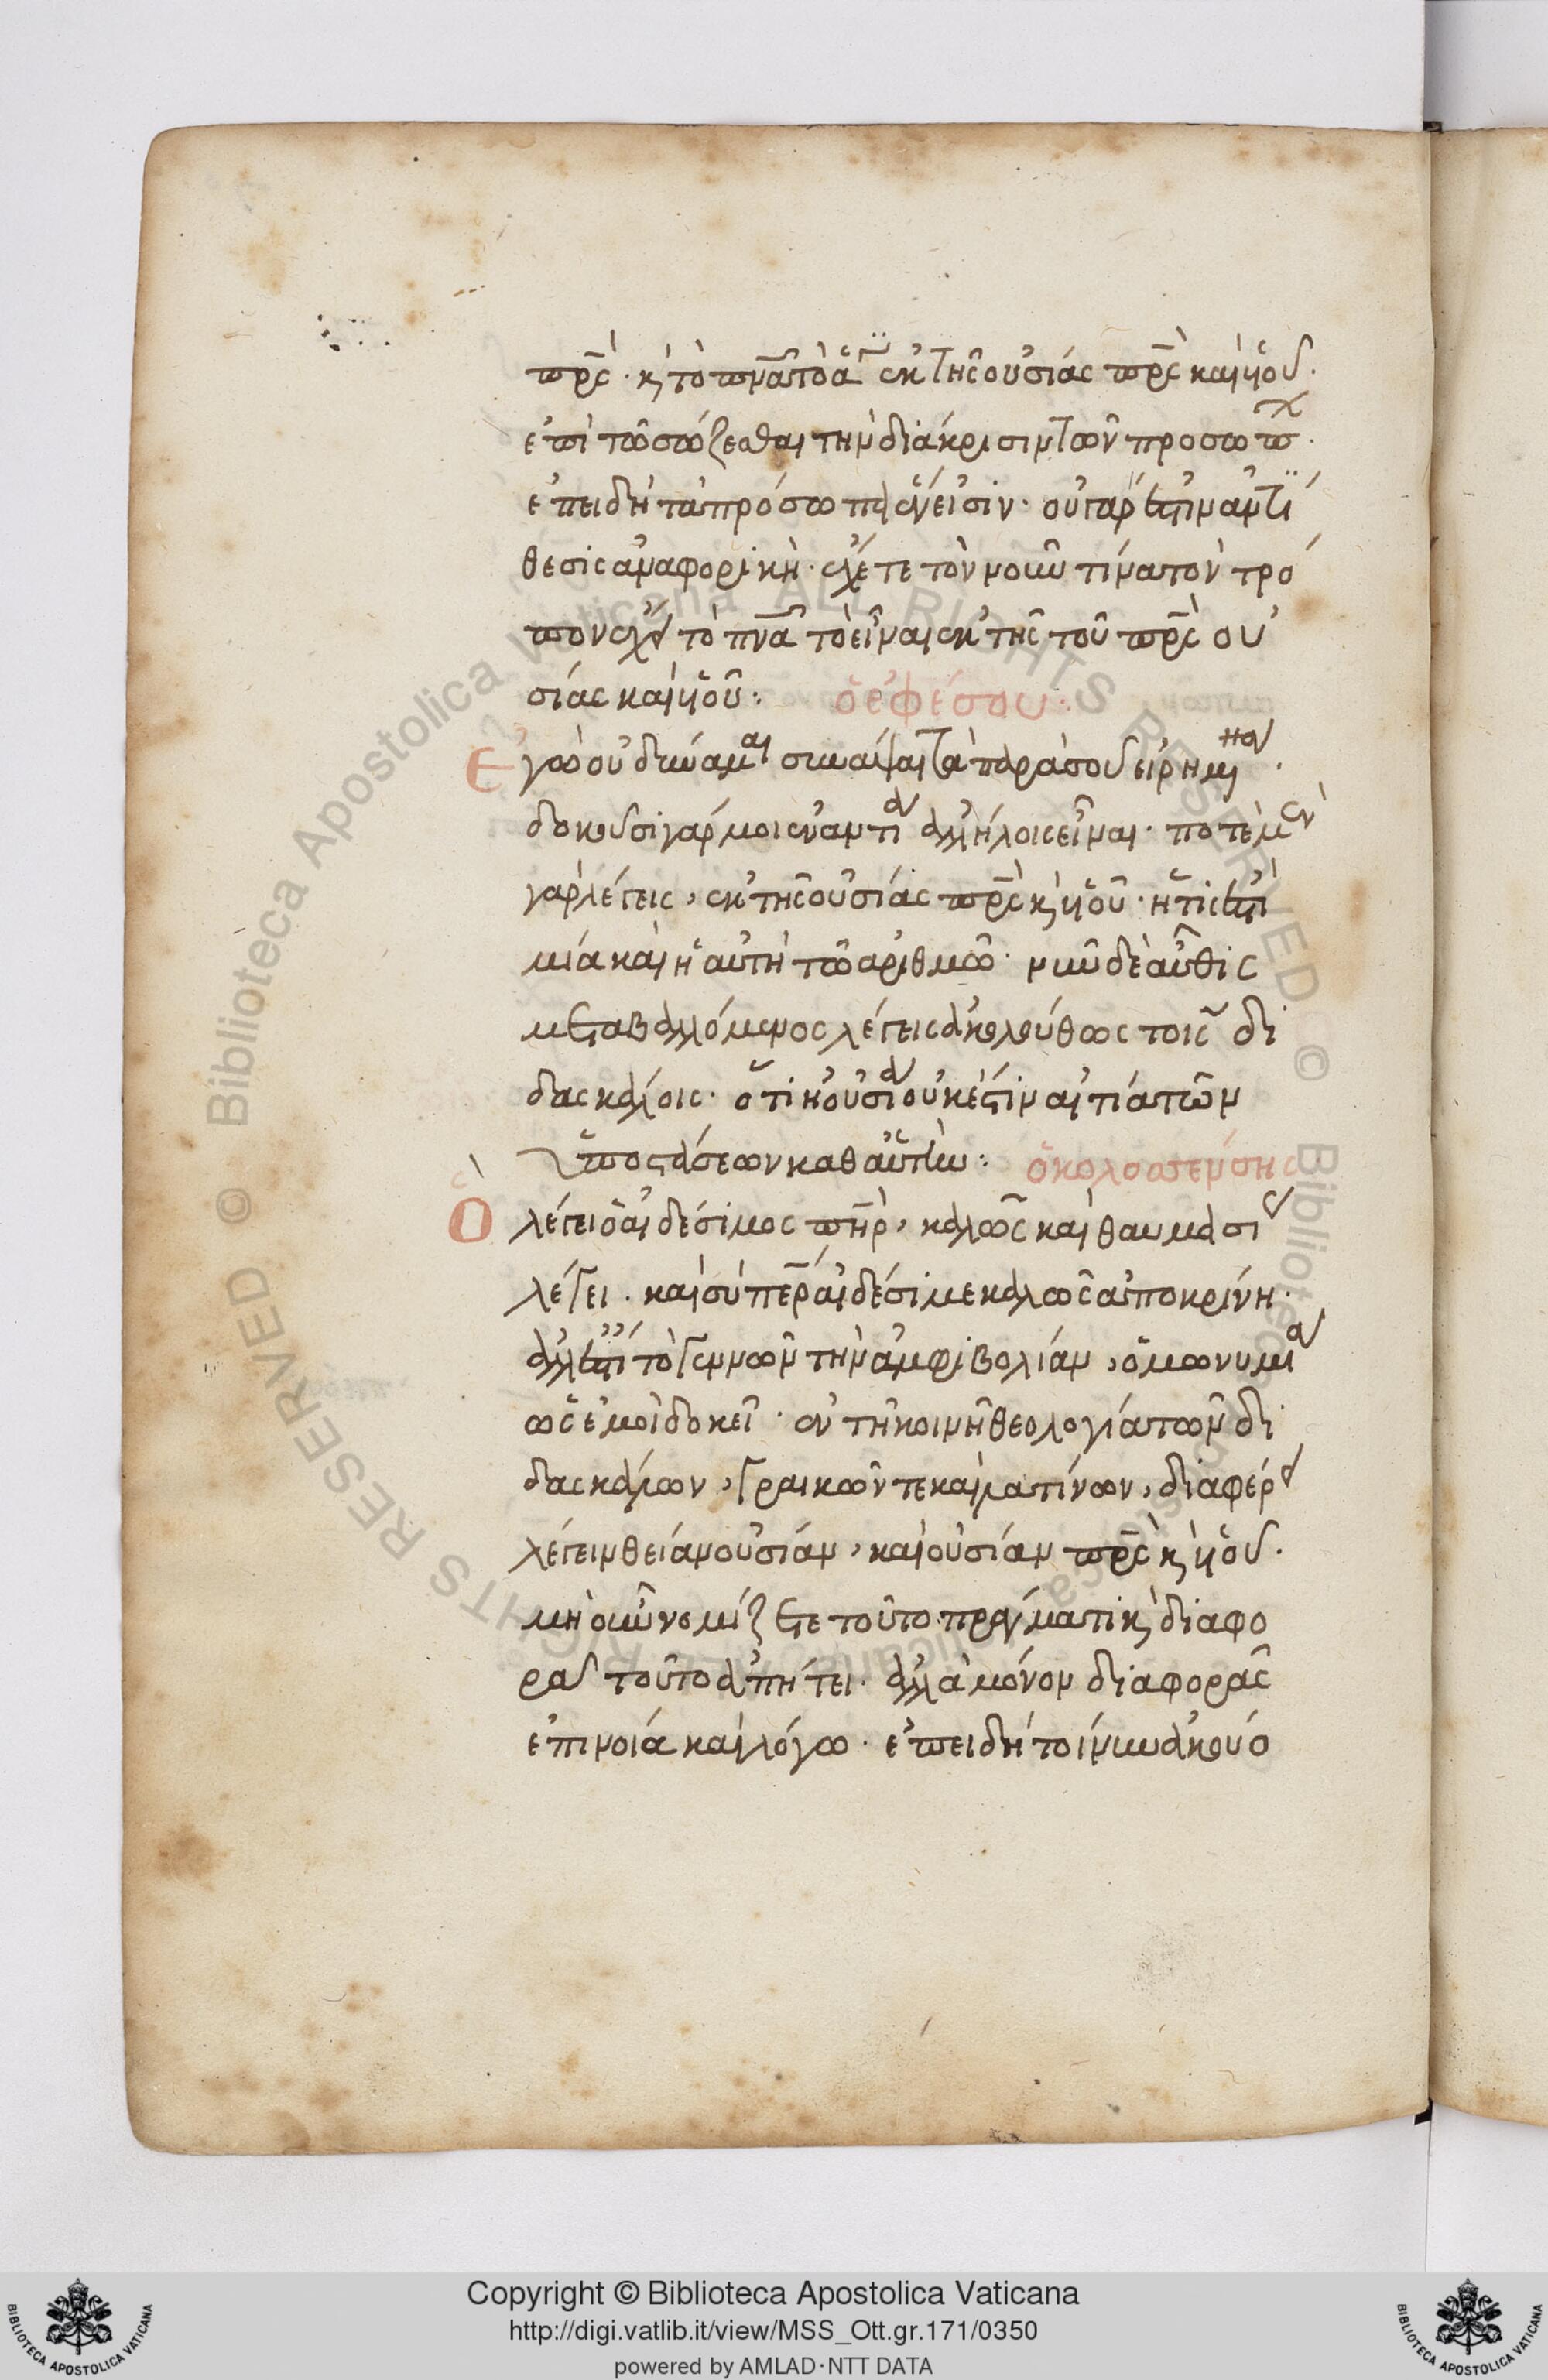 πρς̅. κ̀ τὸ πνᾶ τὸ ἅγιον ἐκ τῆς οὐσίας πρς̅ καὶ υἱοῦ.
ἐπὶ τῶ σώζεσθαι τὴν διάκρισιν τῶν προσώπων.
ἐπειδὴ τὰ πρόσωπα ἕν εἰσιν. οὐ γάρ ἐστιν ἀντί
θεσις ἀναφορικὴ. ἔχετε τὸν νοῦν τίνα τὸν τρό
πον ἔχει τὸ πνᾶ τὸ εἶναι ἐκ τῆς τοῦ πρς̅ οὐ
σίας καὶ υἱοῦ: ὁ ἐφέσου.
Ἐγὼ οὐ δύναμαι συνάψαι τὰ παρὰ σοῦ εἰρημένα.
δοκοῦσι γάρ μοι ἐναντία ἀλλήλοις εἶναι. ποτὲ μὲν
γὰρ λέγεις, ἐκ τῆς οὐσίας πρς̅ κ̀ υἱοῦ. ἥτις ἐστὶ
μία καὶ ἡ αὐτὴ τῶ ἀριθμῶ. νῦν δὲ αὖθις
μεταβαλλόμενος λέγεις ἀκολούθως τοῖς δι
δασκάλοις. ὅτι ἡ οὐσία οὐκ ἔστιν αἰτία τῶν
ὑποστάσεων καθ' αὑτὴν: ὁ κολοατέμσης
Ὃ λέγει ὁ αἰδέσιμος πηρ, καλῶς καὶ θαυμασίως
λέγει. καὶ σὺ περ αἰδέσιμε καλῶς ἀποκρίνη.
ἀλλ' ἔστι τὸ γεννῶν τὴν ἀμφιβολίαν, ὁμωνυμία
ὡς ἐμοὶ δοκεῖ. ἐν τῆ κοινῆ θεολογία τῶν δι
δασκάλων, γραικῶν τε καὶ λατίνων, διαφέρει
λέγειν θείαν οὐσίαν, καὶ οὐσίαν πρς̅ κ̀ υἱοῦ.
μὴ οὖν νομίζετε τοῦτο. πραγματικὴ διαφο
ρὰ τοῦτο ἀπήτει. ἀλλὰ μόνον διαφορᾶς
ἐπινοία καὶ λόγω. ἐπειδὴ τοίνυν ἀκούο
Copyright © Biblioteca Apostolica Vaticana
http://digi.vatlib.it/view/MSS_Ott.gr.171/0350
powered by AMLAD·NTT DATA